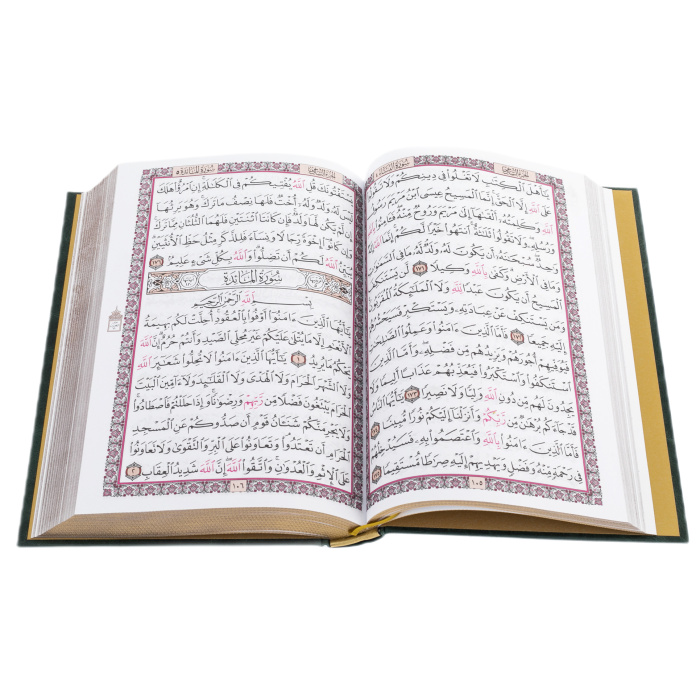 يَٰٓأَهۡلَ ٱلۡكِتَٰبِ لَا تَغۡلُواْ فِي دِينِكُمۡ وَلَا تَقُولُواْ
عَلَى ٱللَّهِ إِلَّا ٱلۡحَقَّۚ إِنَّمَا ٱلۡمَسِيحُ عِيسَى ٱبۡنُ مَرۡيَمَ رَسُولُ
ٱللَّهِ وَكَلِمَتُهُۥٓ أَلۡقَىٰهَآ إِلَىٰ مَرۡيَمَ وَرُوحٞ مِّنۡهُۖ فَـَٔامِنُواْ بِٱللَّهِ
وَرُسُلِهِۦۖ وَلَا تَقُولُواْ ثَلَٰثَةٌۚ ٱنتَهُواْ خَيۡرٗا لَّكُمۡۚ إِنَّمَا ٱللَّهُ إِلَٰهٞ
وَٰحِدٞۖ سُبۡحَٰنَهُۥٓ أَن يَكُونَ لَهُۥ وَلَدٞۘ لَّهُۥ مَا فِي ٱلسَّمَٰوَٰتِ
وَمَا فِي ٱلۡأَرۡضِۗ وَكَفَىٰ بِٱللَّهِ وَكِيلٗا ١٧١ لَّن يَسۡتَنكِفَ
ٱلۡمَسِيحُ أَن يَكُونَ عَبۡدٗا لِّلَّهِ وَلَا ٱلۡمَلَٰٓئِكَةُ ٱلۡمُقَرَّبُونَۚ
وَمَن يَسۡتَنكِفۡ عَنۡ عِبَادَتِهِۦ وَيَسۡتَكۡبِرۡ فَسَيَحۡشُرُهُمۡ
إِلَيۡهِ جَمِيعٗا ١٧٢ فَأَمَّا ٱلَّذِينَ ءَامَنُواْ وَعَمِلُواْ ٱلصَّٰلِحَٰتِ
فَيُوَفِّيهِمۡ أُجُورَهُمۡ وَيَزِيدُهُم مِّن فَضۡلِهِۦۖ وَأَمَّا ٱلَّذِينَ
ٱسۡتَنكَفُواْ وَٱسۡتَكۡبَرُواْ فَيُعَذِّبُهُمۡ عَذَابًا أَلِيمٗا وَلَا
يَجِدُونَ لَهُم مِّن دُونِ ٱللَّهِ وَلِيّٗا وَلَا نَصِيرٗا ١٧٣ يَٰٓأَيُّهَا ٱلنَّاسُ
قَدۡ جَآءَكُم بُرۡهَٰنٞ مِّن رَّبِّكُمۡ وَأَنزَلۡنَآ إِلَيۡكُمۡ نُورٗا مُّبِينٗا ١٧٤
فَأَمَّا ٱلَّذِينَ ءَامَنُواْ بِٱللَّهِ وَٱعۡتَصَمُواْ بِهِۦ فَسَيُدۡخِلُهُمۡ
فِي رَحۡمَةٖ مِّنۡهُ وَفَضۡلٖ وَيَهۡدِيهِمۡ إِلَيۡهِ صِرَٰطٗا مُّسۡتَقِيمٗا ١٧٥
١٠٥
سُورَةُ المَائدة ٥
يَسۡتَفۡتُونَكَ قُلِ ٱللَّهُ يُفۡتِيكُمۡ فِي ٱلۡكَلَٰلَةِۚ إِنِ ٱمۡرُؤٌاْ هَلَكَ
لَيۡسَ لَهُۥ وَلَدٞ وَلَهُۥٓ أُخۡتٞ فَلَهَا نِصۡفُ مَا تَرَكَۚ وَهُوَ يَرِثُهَآ
إِن لَّمۡ يَكُن لَّهَا وَلَدٞۚ فَإِن كَانَتَا ٱثۡنَتَيۡنِ فَلَهُمَا ٱلثُّلُثَانِ مِمَّا تَرَكَۚ
وَإِن كَانُوٓاْ إِخۡوَةٗ رِّجَالٗا وَنِسَآءٗ فَلِلذَّكَرِ مِثۡلُ حَظِّ ٱلۡأُنثَيَيۡنِۗ
يُبَيِّنُ ٱللَّهُ لَكُمۡ أَن تَضِلُّواْۗ وَٱللَّهُ بِكُلِّ شَيۡءٍ عَلِيمُۢ ١٧٦
سُورَةُ المَائدة
بِسۡمِ ٱللَّهِ ٱلرَّحۡمَٰنِ ٱلرَّحِيمِ
يَٰٓأَيُّهَا ٱلَّذِينَ ءَامَنُوٓاْ أَوۡفُواْ بِٱلۡعُقُودِۚ أُحِلَّتۡ لَكُم بَهِيمَةُ
ٱلۡأَنۡعَٰمِ إِلَّا مَا يُتۡلَىٰ عَلَيۡكُمۡ غَيۡرَ مُحِلِّي ٱلصَّيۡدِ وَأَنتُمۡ حُرُمٌۗ إِنَّ ٱللَّهَ
يَحۡكُمُ مَا يُرِيدُ ١ يَٰٓأَيُّهَا ٱلَّذِينَ ءَامَنُواْ لَا تُحِلُّواْ شَعَٰٓئِرَ ٱللَّهِ
وَلَا ٱلشَّهۡرَ ٱلۡحَرَامَ وَلَا ٱلۡهَدۡيَ وَلَا ٱلۡقَلَٰٓئِدَ وَلَآ ءَآمِّينَ ٱلۡبَيۡتَ
ٱلۡحَرَامَ يَبۡتَغُونَ فَضۡلٗا مِّن رَّبِّهِمۡ وَرِضۡوَٰنٗاۚ وَإِذَا حَلَلۡتُمۡ فَٱصۡطَادُواْۚ
وَلَا يَجۡرِمَنَّكُمۡ شَنَـَٔانُ قَوۡمٍ أَن صَدُّوكُمۡ عَنِ ٱلۡمَسۡجِدِ
ٱلۡحَرَامِ أَن تَعۡتَدُواْۘ وَتَعَاوَنُواْ عَلَى ٱلۡبِرِّ وَٱلتَّقۡوَىٰۖ وَلَا تَعَاوَنُواْ
عَلَى ٱلۡإِثۡمِ وَٱلۡعُدۡوَٰنِۚ وَٱتَّقُواْ ٱللَّهَۖ إِنَّ ٱللَّهَ شَدِيدُ ٱلۡعِقَابِ ٢
١٠٦